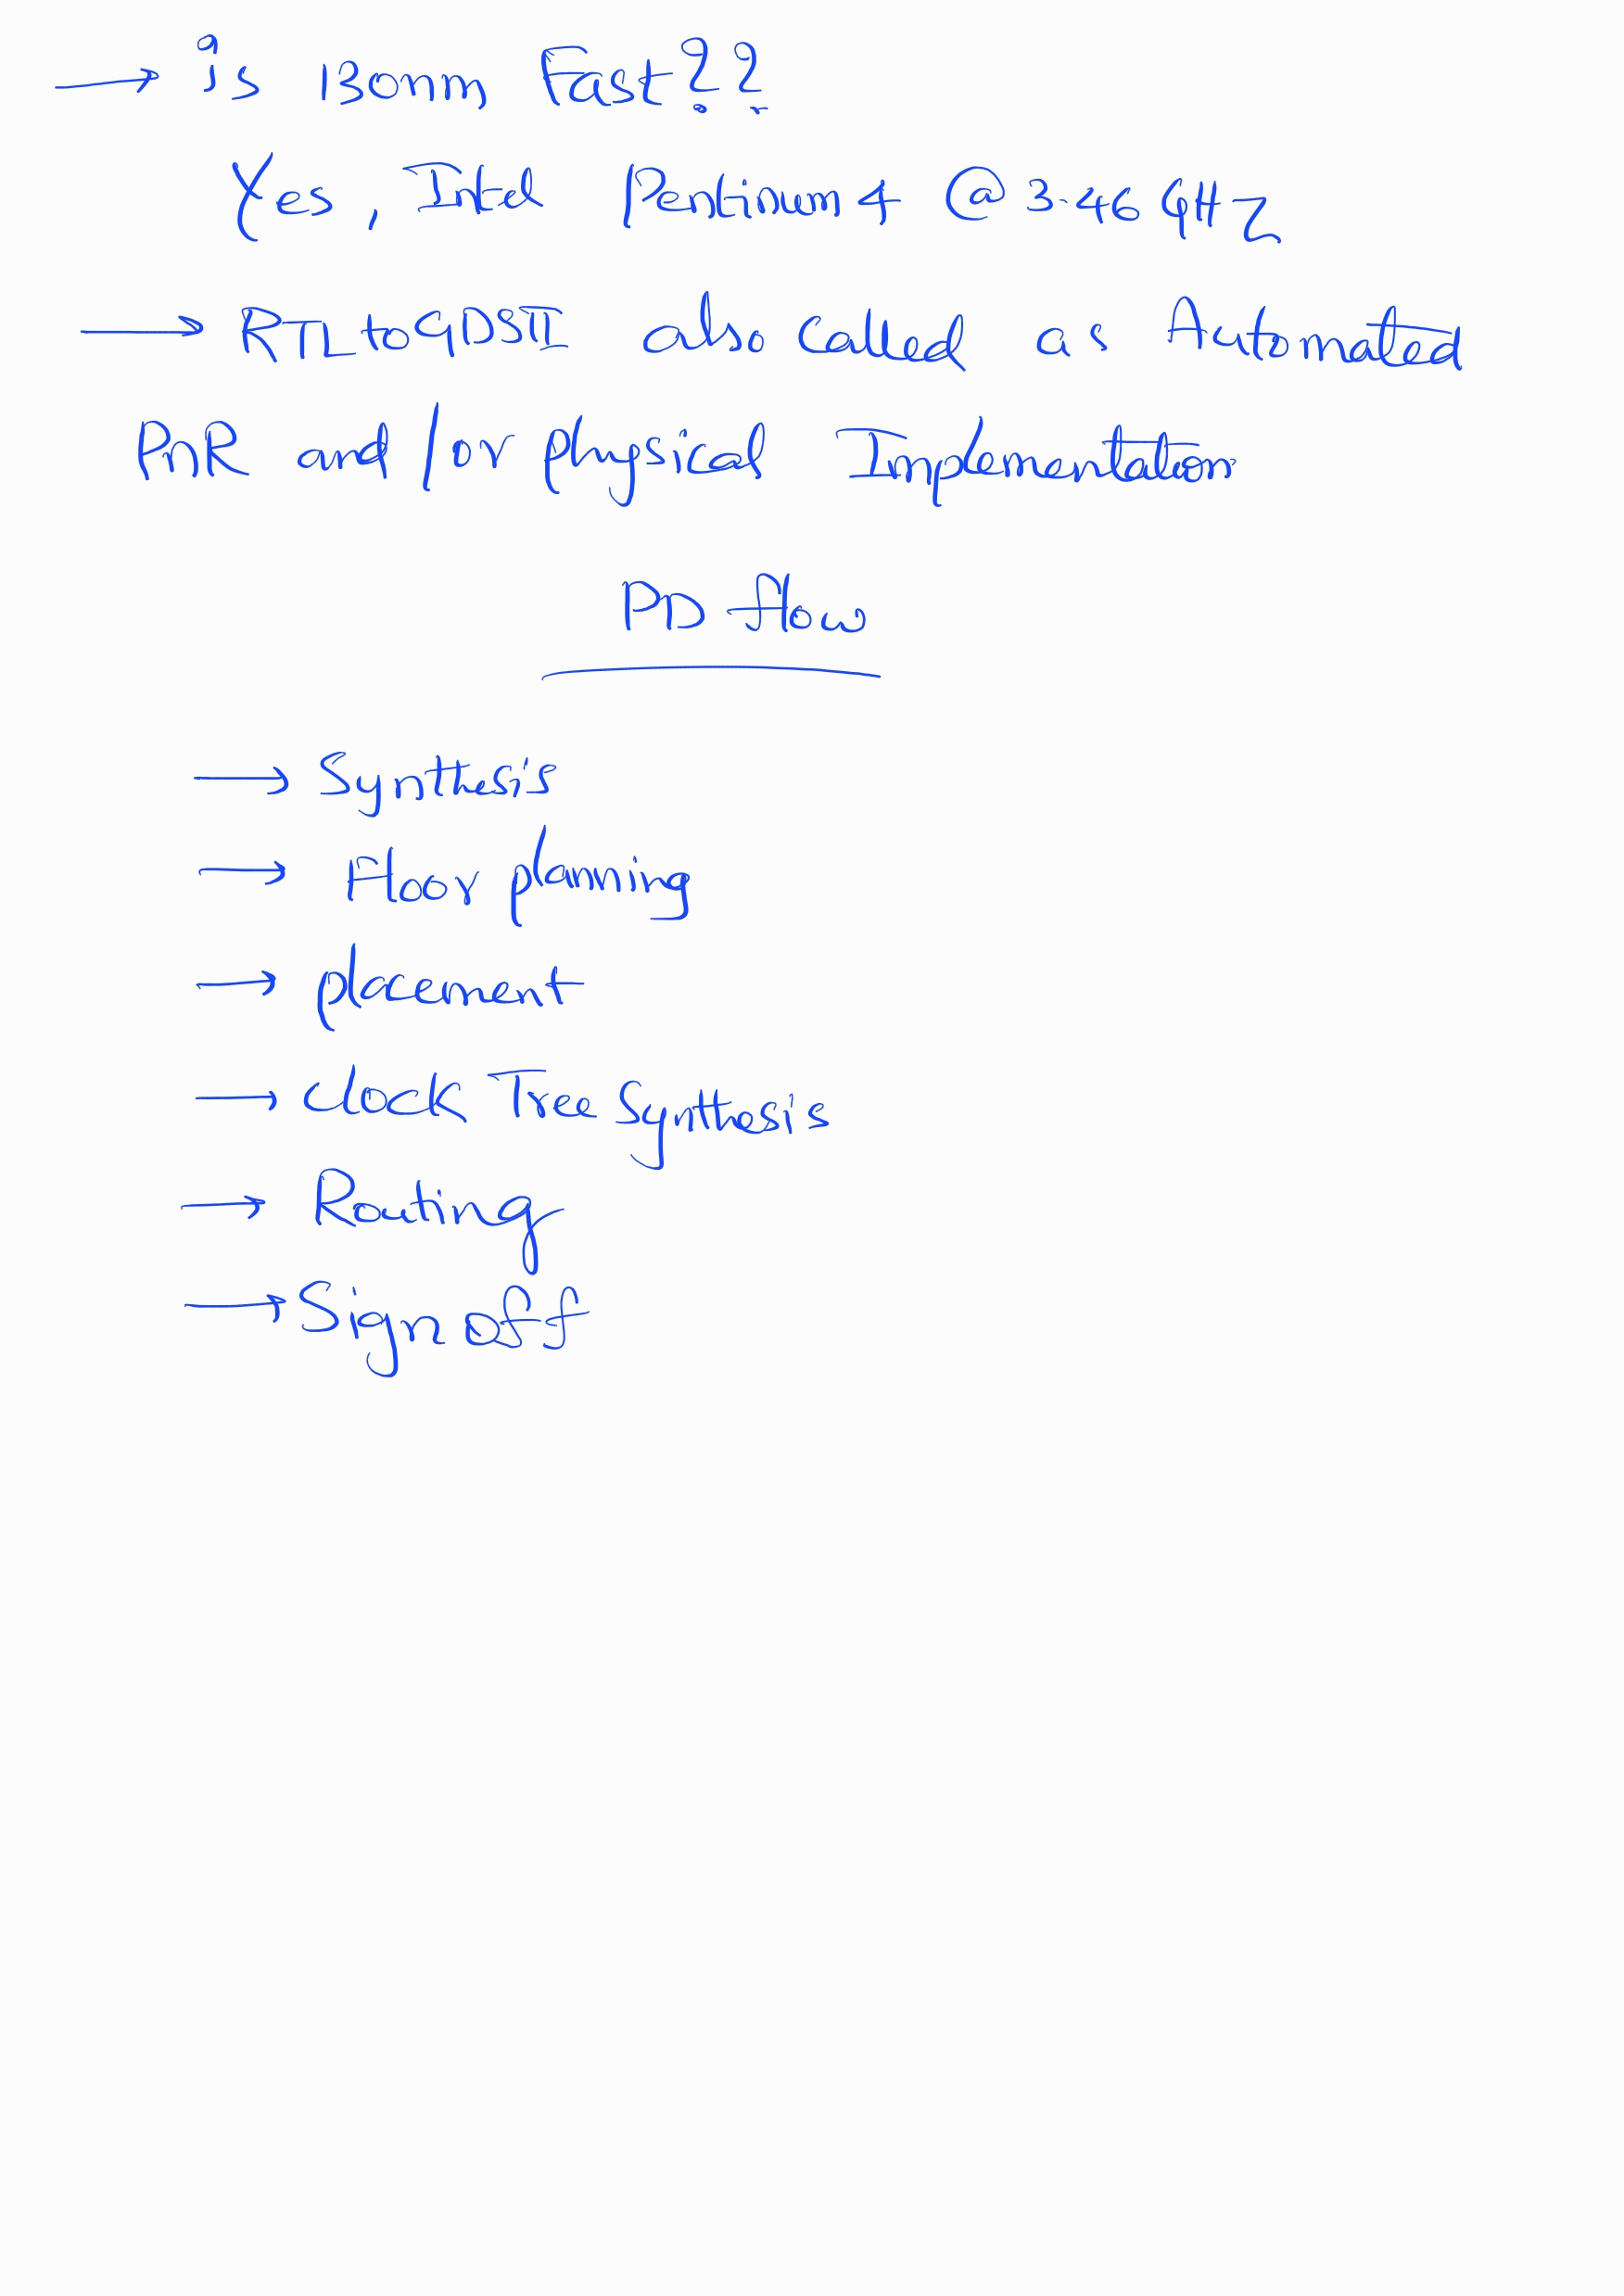 → is 130nm Fast??
Yes, Intel Pentinum 4 @ 3.46 GHz
→ RTL to GDSII also called as Automated
PnR and/or physical Implementation
PD flow
→ Synthesis
→ Floor planning
→ placement
→ Clock Tree Synthesis
→ Routing
→ Sign off